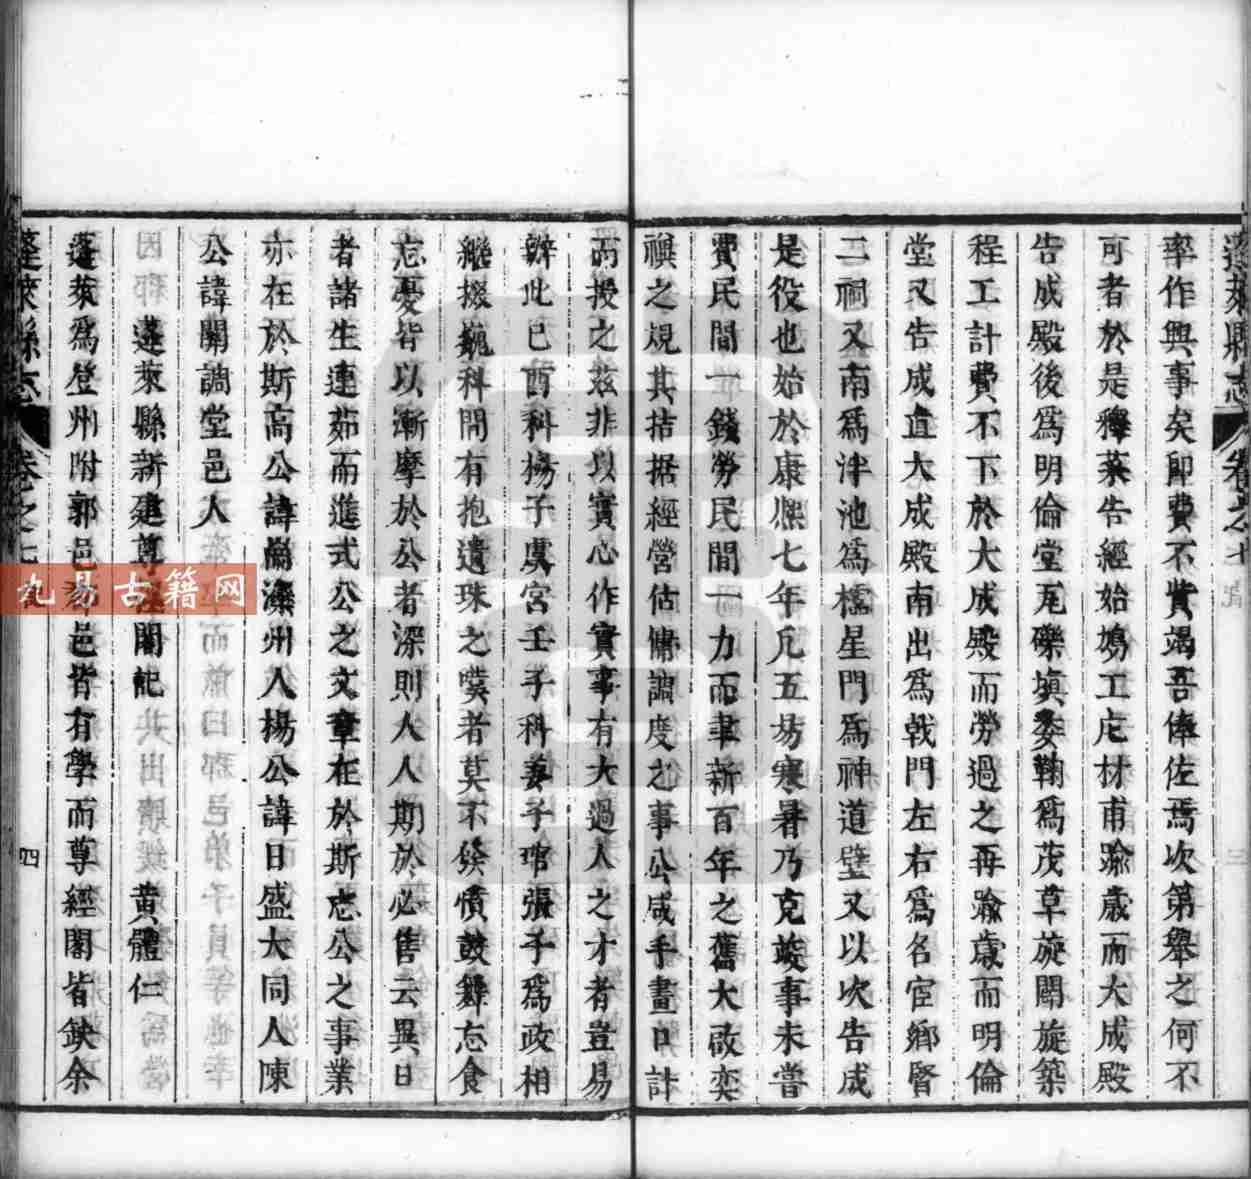 蓬萊縣志 卷之七
率作興事矣卽費不貲竭吾俸佐焉次第舉之何不
可者於是釋菜告經始鳩工庀材甫踰歲而大成殿
告成殿後爲明倫堂瓦礫塡委鞠爲茂草旋闢旋築
程工計費不下於大成殿而勞過之再踰歲而明倫
堂又告成直大成殿南出爲戟門左右爲名宦鄉賢
二祠又南爲泮池爲櫺星門爲神道壁又以次告成
是役也始於康熙七年凡五易寒暑乃克竣事未嘗
費民間一錢勞民間一力而聿新百年之舊大啟奕
禩之規其拮据經營估傭調度之事公咸手畫口計
而授之茲非以實心作實事有大過人之才者豈易
辦此已酉科楊子虞宮壬子科姜子琯張子爲政相
繼掇巍科間有抱遺珠之嘆者莫不發憤鼓舞忘食
忘憂皆以漸摩於公者深則人人期於必售云異日
者諸生連茹而進式公之文章在於斯志公之事業
亦在於斯高公諱 濼州人揚公諱日盛大同人陳
公諱閶調堂邑人
蓬萊縣新建尊 閣記 黃體仁
蓬萊爲登州附郭邑 邑皆有學而尊經閣皆缺余
蓬萊縣志 卷之七 四
九易古籍网